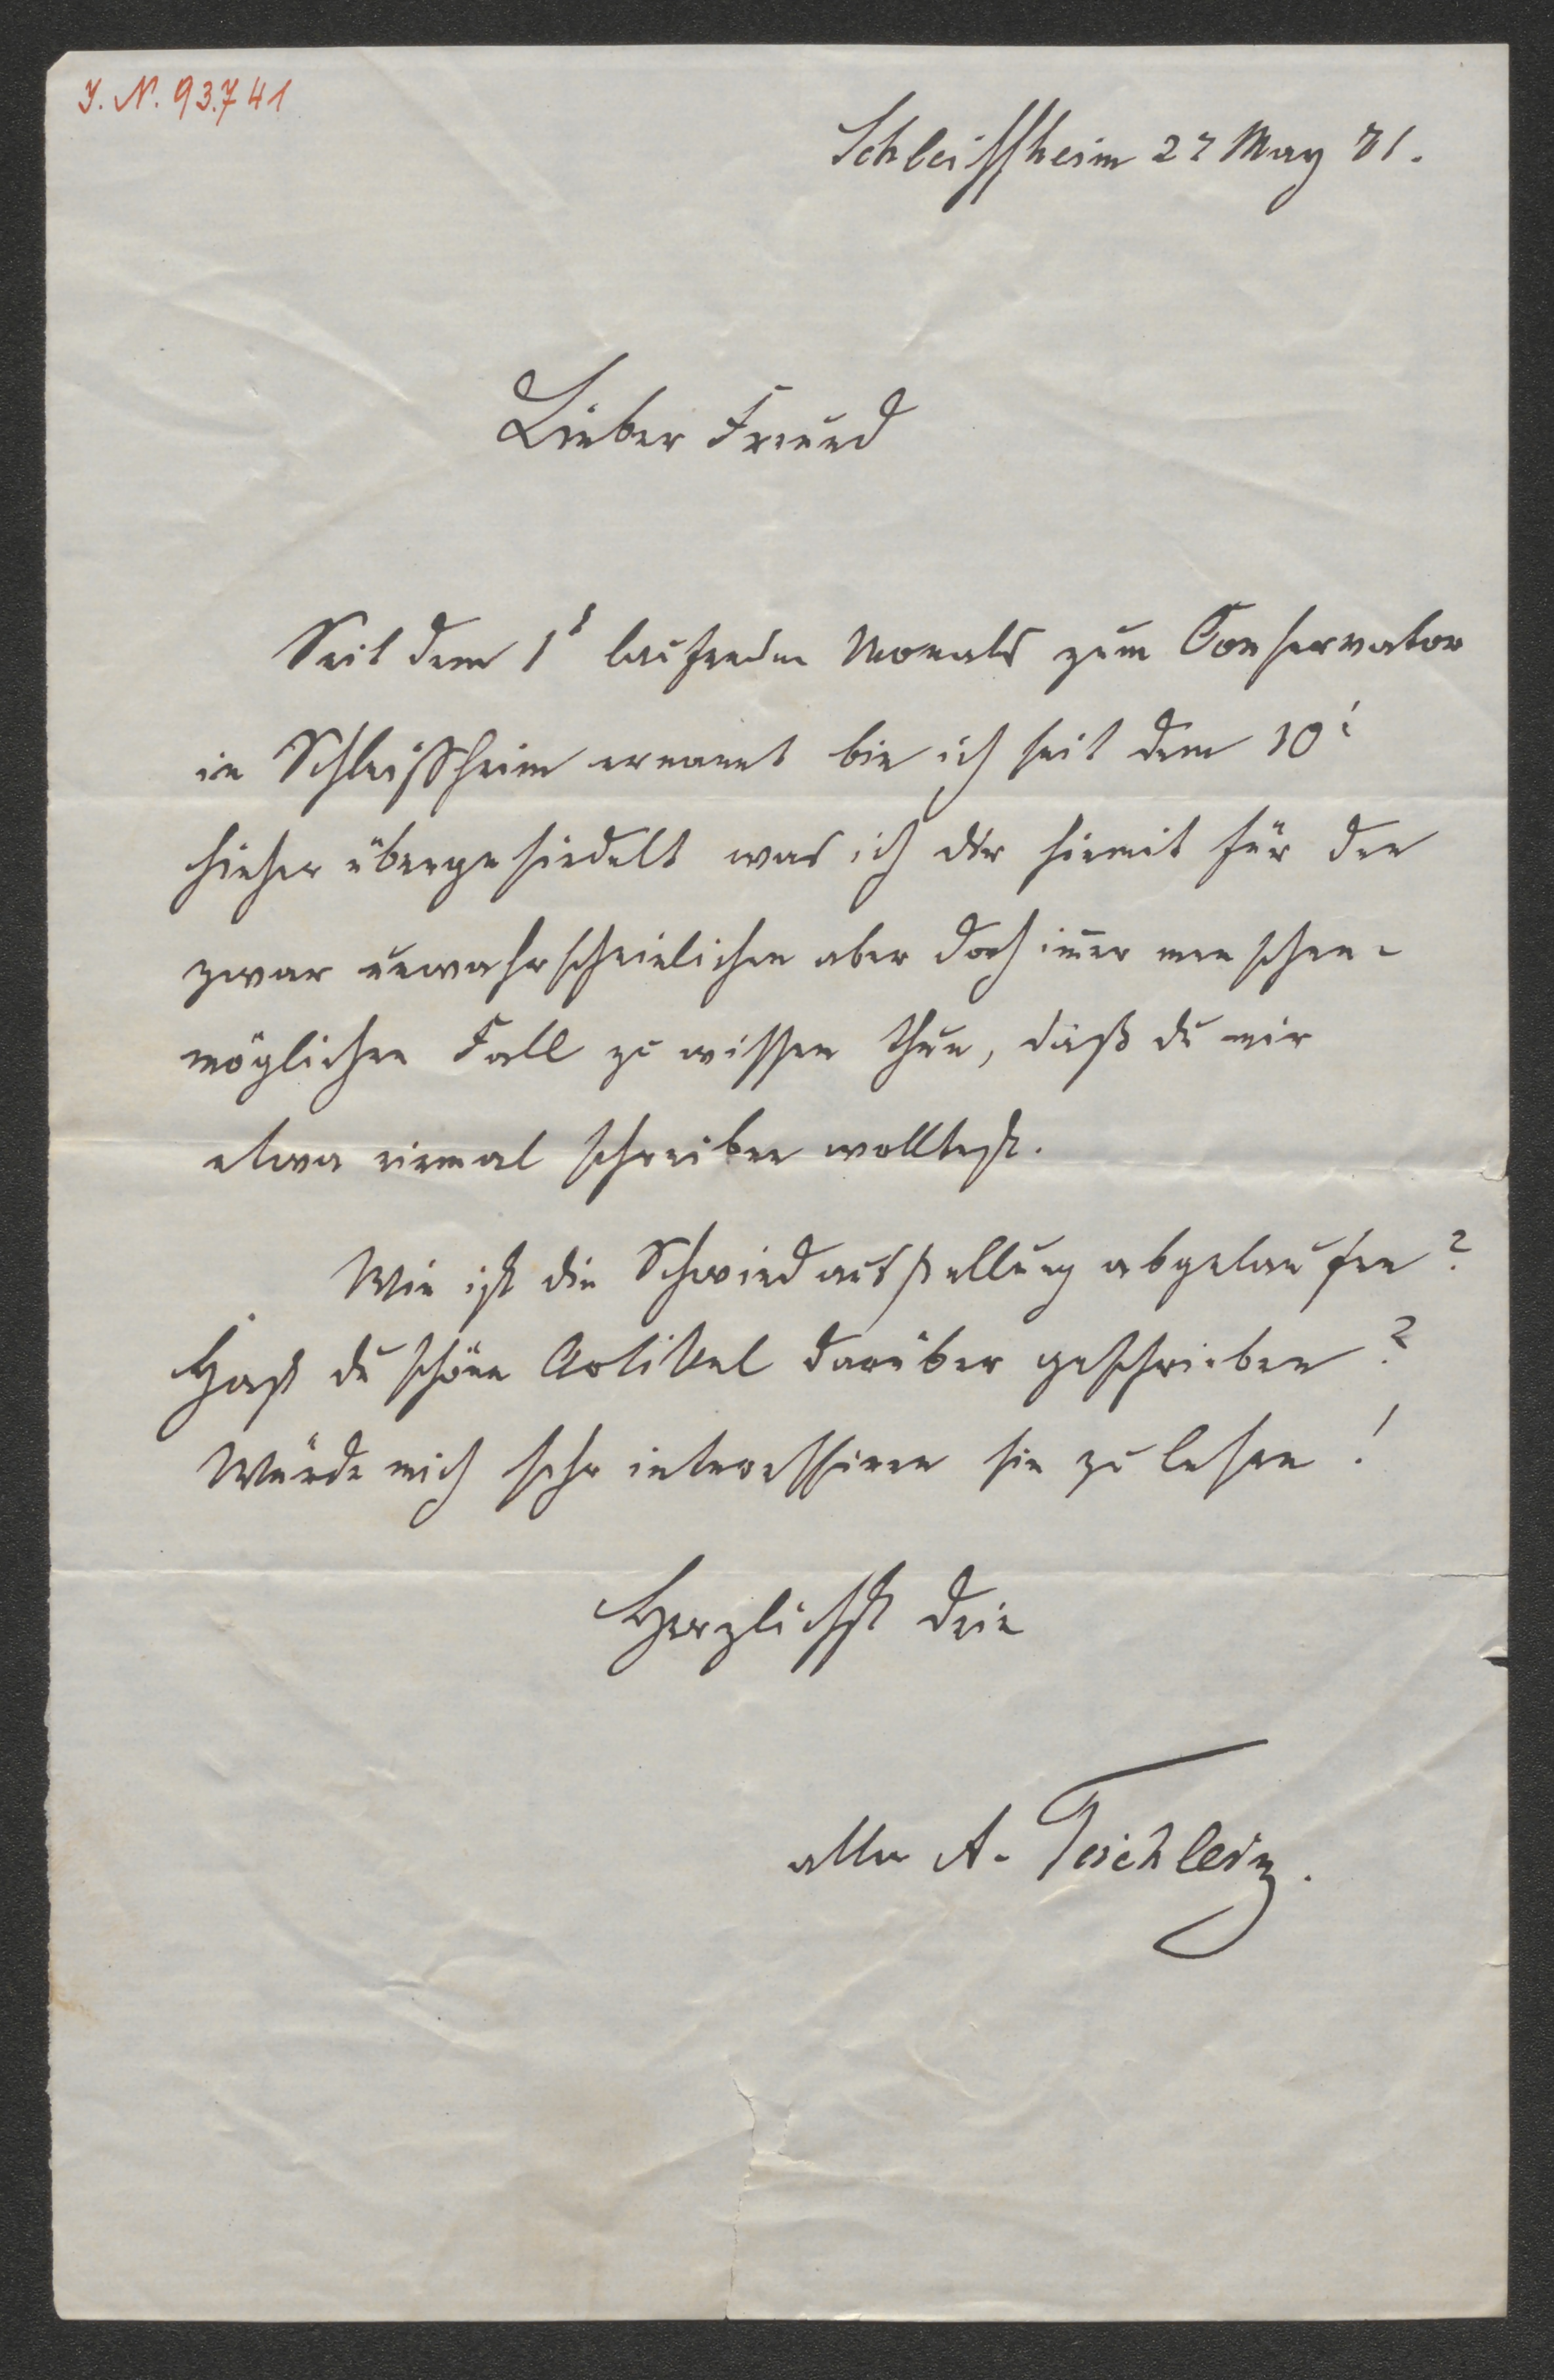 J. N. 93.741
Schleissheim 27 May 71.
Lieber Freund
Seit dem 1t laufenden Monats zum Conservator
in Schleissheim ernannt bin ich seit dem 10t
hieher übergesiedelt was ich dir hiemit für den
zwar unwahrscheinlichen aber doch im̄er menschen-
möglichen Fall zu wissen thue, daß du mir
etwa einmal schreiben wolltest.
Wie ist die Schwindausstellung abgelaufen?
Hast du schöne Artikel darüber geschrieben?
Würde mich sehr interessiren sie zu lesen!
Herzlichst dein
alter A. Teichlein.